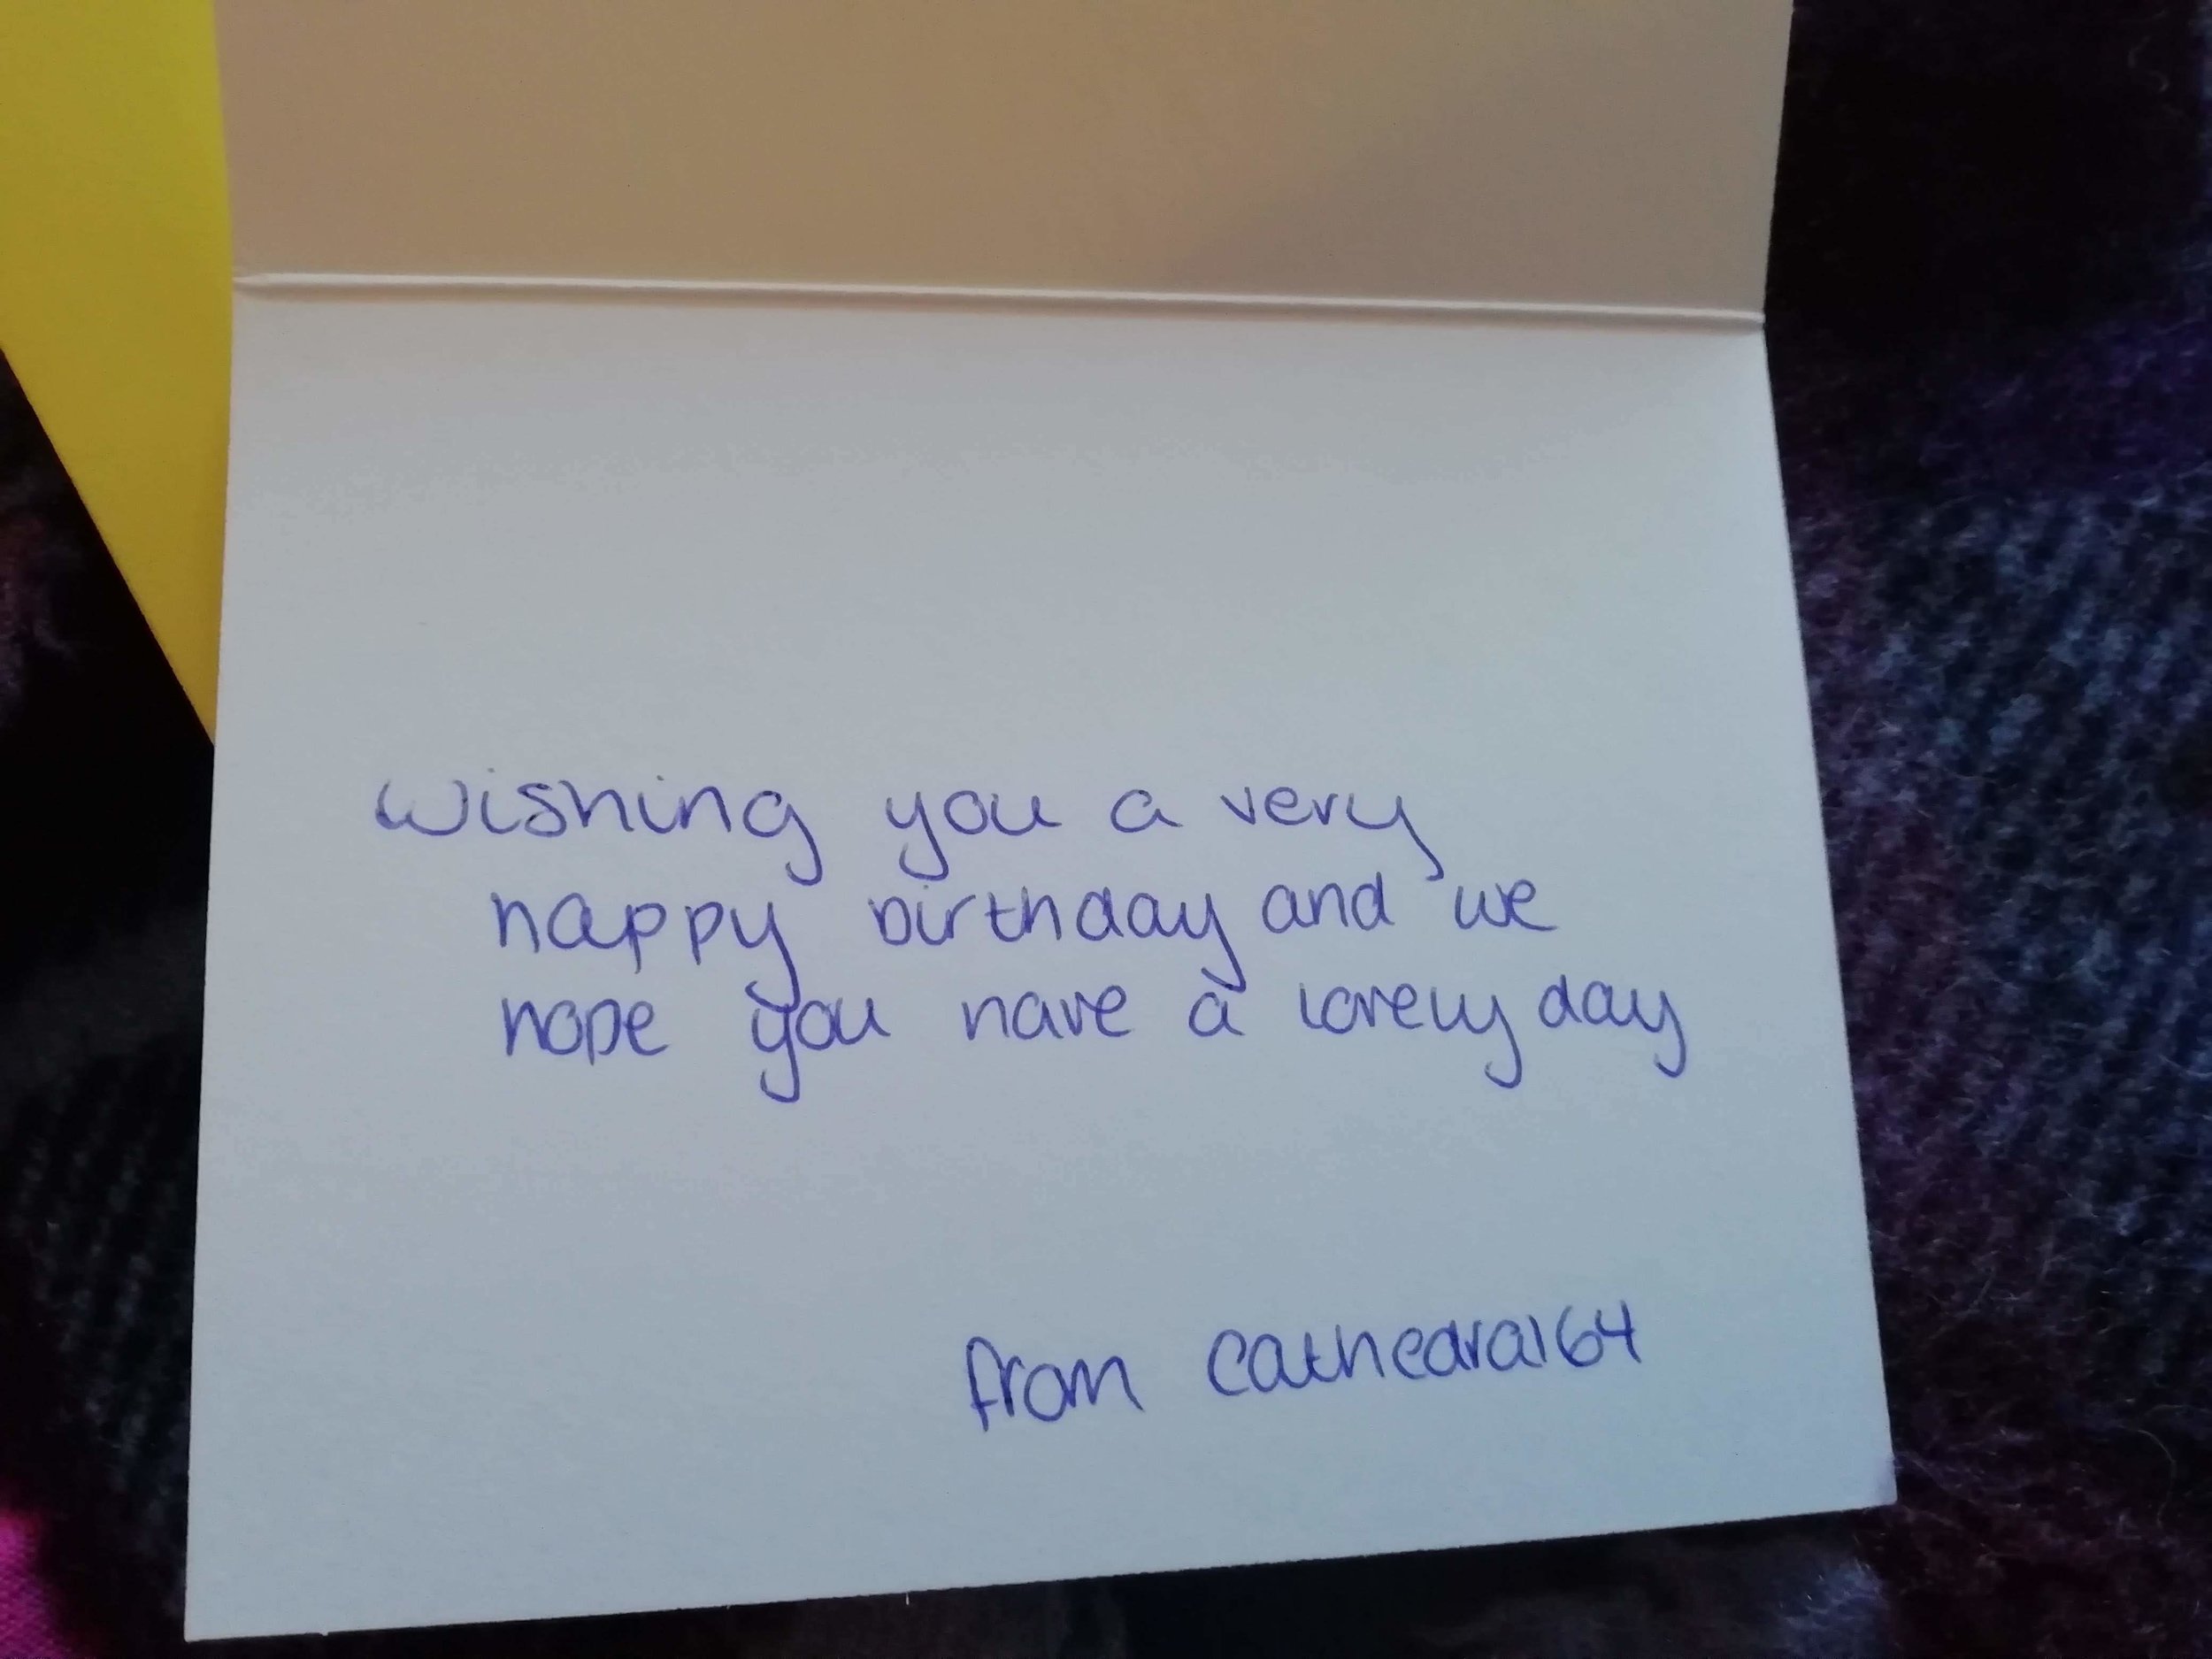 Wishing you a very
happy birthday and we
hope you have a lovely day
from Cathedral64